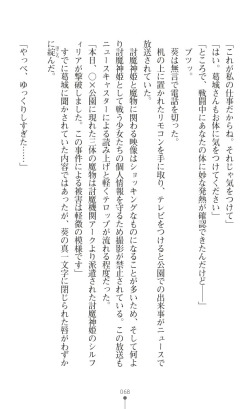 「これが私の仕事だからね。それじゃ気をつけて」
「はい。葛城さんもお体に気をつけてください」
「ところで、戦闘中にあなたの体に妙な発熱が確認できたんだけど――」
ブツッ。
葵は無言で電話を切った。
机の上に置かれたリモコンを手に取り、テレビをつけると公園での出来事がニュースで
放送されていた。
討魔神姫と魔物に関わる映像はショッキングなものになることが多いため、そして何よ
り討魔神姫として戦う少女たちの個人情報を守るため撮影が禁止されている。この放送も
ニュースキャスターによる読み上げと軽くテロップが流れる程度だった。
「本日、○×公園に現れた二体の魔物は討魔機関アークより派遣された討魔神姫のシルフ
ィリアが撃破しました。この事件による被害は軽微の模様です」
すでに葛城に聞かされていた内容ではあったが、葵の真一文字に閉じられた唇がわずか
に綻んだ。
「やっべ、ゆっくりしすぎた……」
068